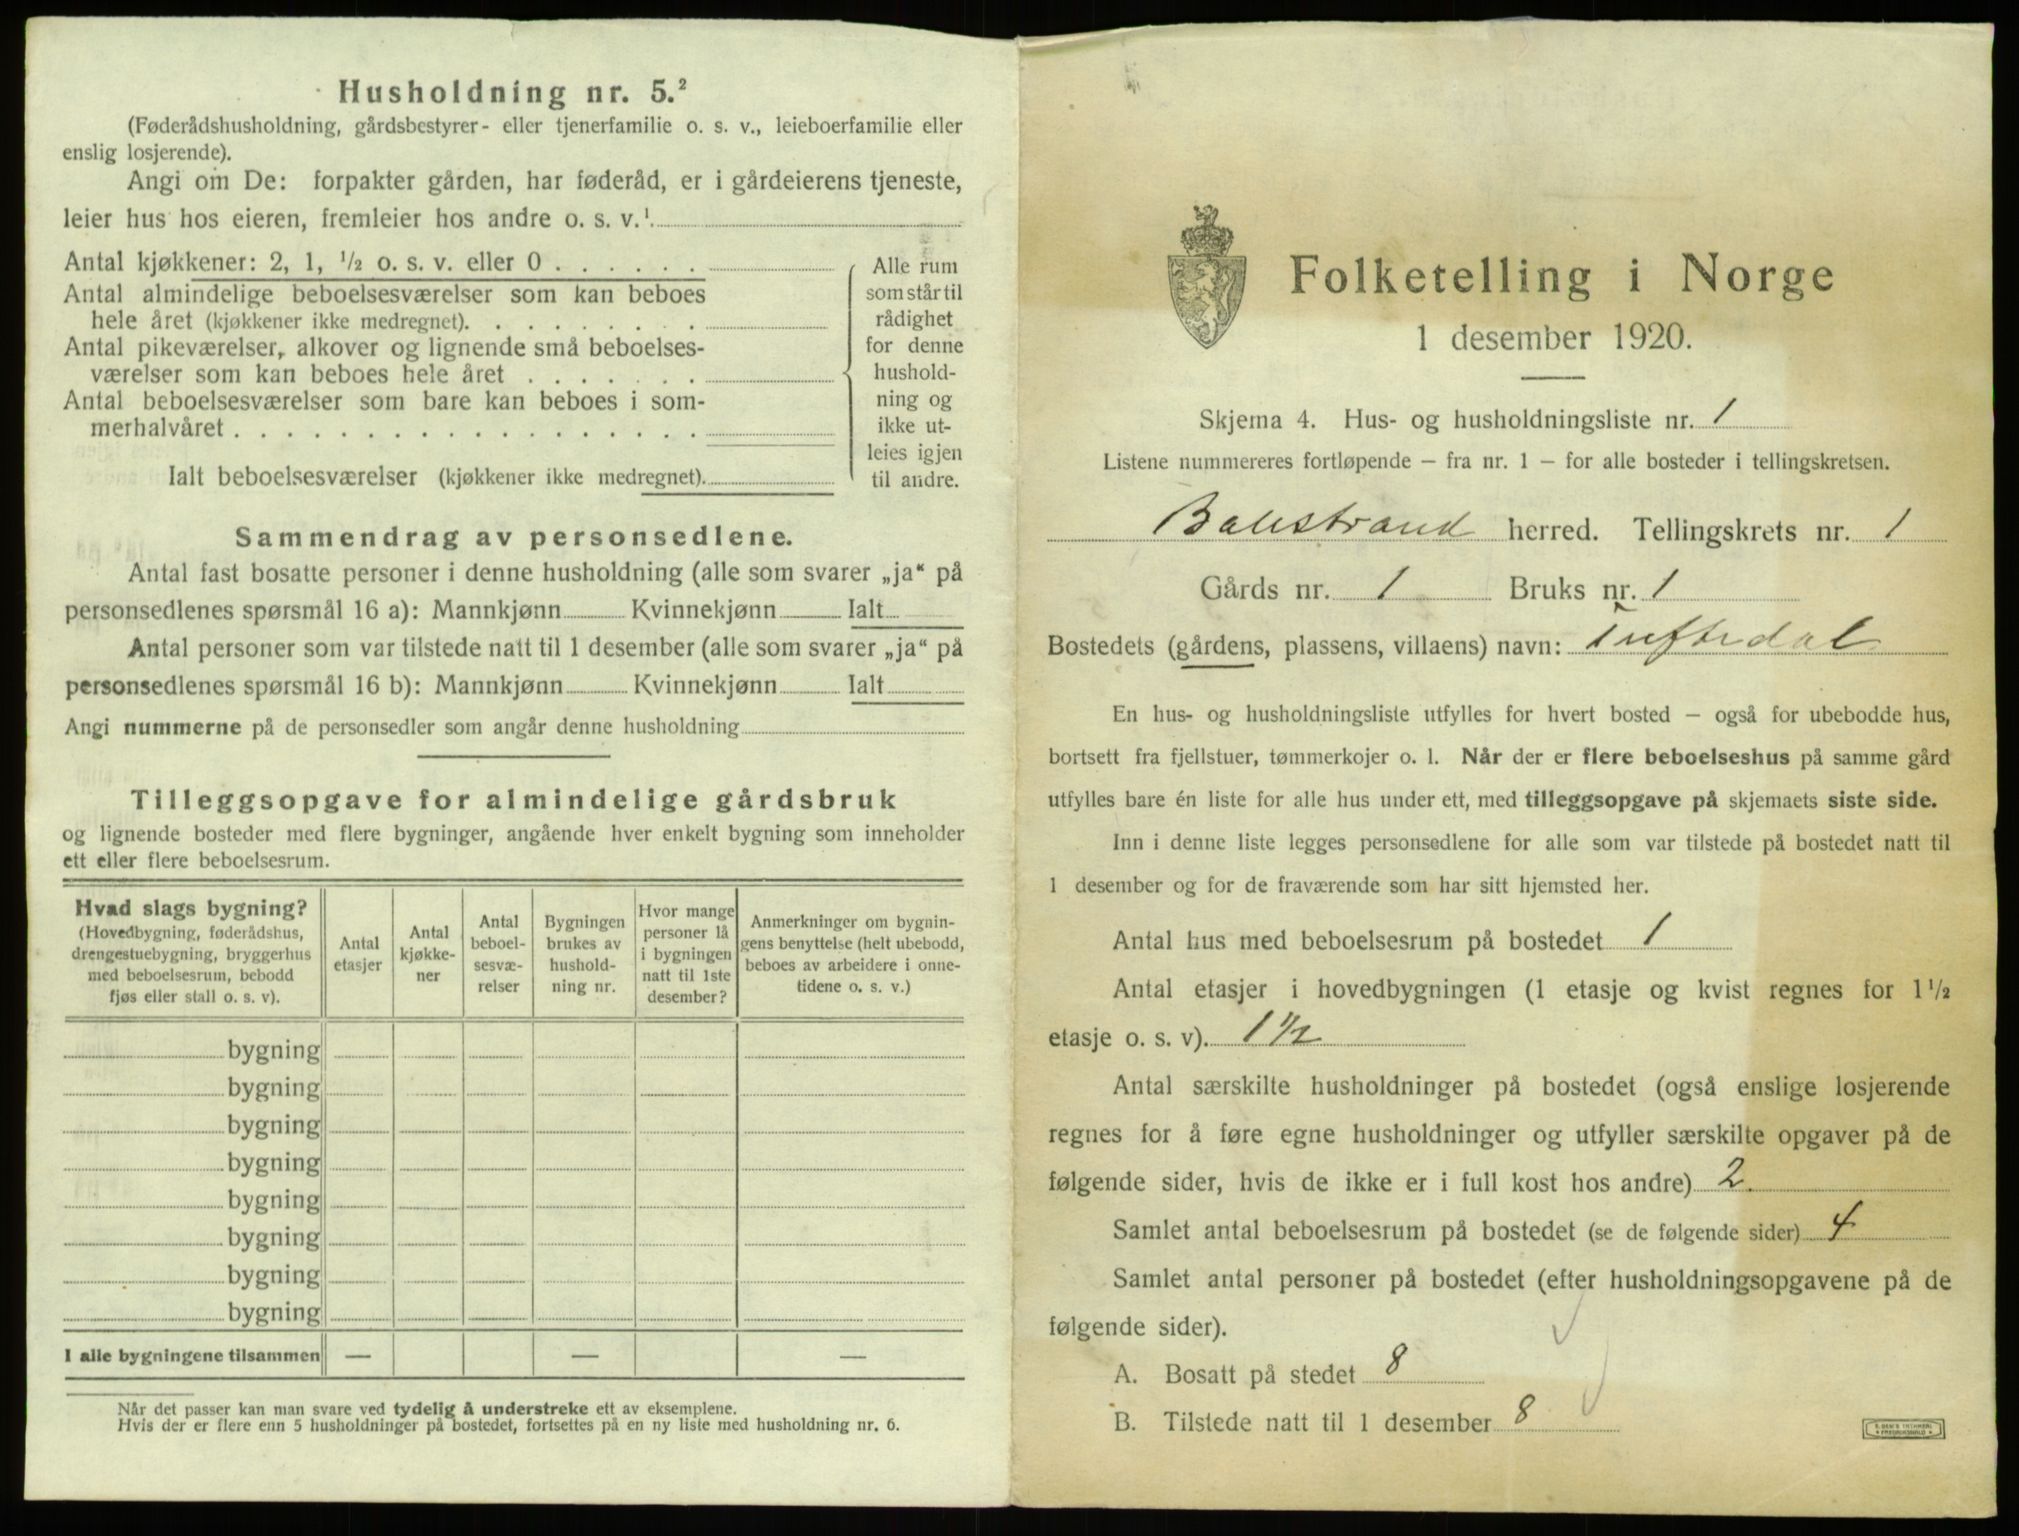 Husholdning nr. 5.²
(Føderådshusholdning, gårdsbestyrer- eller tjenerfamilie o. s. v., leieboerfamilie eller
enslig losjerende).
Angi om De: forpakter gården, har føderåd, er i gårdeierens tjeneste,
leier hus hos eieren, fremleier hos andre o. s. v.¹
Antal kjøkkener: 2, 1, ½ o. s. v. eller 0 . . . . . .
Antal almindelige beboelsesværelser som kan beboes
hele året (kjøkkener ikke medregnet). . . . . . . . .
Antal pikeværelser, alkover og lignende små beboelses-
værelser som kan beboes hele året . . . . . . .
Antal beboelsesværelser som bare kan beboes i som-
merhalvåret . . . . . . . . . . . . . . . . .
Ialt beboelsesværelser (kjøkkener ikke medregnet).
Alle rum
som står til
rådighet
for denne
hushold-
ning og
ikke ut-
leies igjen
til andre.
Sammendrag av personsedlene.
Antal fast bosatte personer i denne husholdning (alle som svarer „ja“ på
personsedlenes spørsmål 16 a): Mannkjønn Kvinnekjønn Ialt
Antal personer som var tilstede natt til 1 desember (alle som svarer „ja“ på
personsedlenes spørsmål 16 b): Mannkjønn Kvinnekjønn Ialt
Angi nummerne på de personsedler som angår denne husholdning
Tilleggsopgave for almindelige gårdsbruk
og lignende bosteder med flere bygninger, angående hver enkelt bygning som inneholder
ett eller flere beboelsesrum.
Hvad slags bygning?
(Hovedbygning, føderådshus,
drengestuebygning, bryggerhus
med beboelsesrum, bebodd
fjøs eller stall o. s. v).
Antal
etasjer
Antal
kjøkke-
ner
Antal
beboel-
sesvæ-
relser
Bygningen
brukes av
hushold-
ning nr.
Hvor mange
personer lå
i bygningen
natt til 1ste
desember?
Anmerkninger om bygnin-
gens benyttelse (helt ubebodd,
beboes av arbeidere i onne-
tidene o. s. v.)
bygning
bygning
bygning
bygning
bygning
bygning
bygning
bygning
I alle bygningene tilsammen — — —
Når det passer kan man svare ved tydelig å understreke ett av eksemplene.
Hvis der er flere enn 5 husholdninger på bostedet, fortsettes på en ny liste med husholdning nr. 6.
Folketelling i Norge
1 desember 1920.
Skjema 4. Hus- og husholdningsliste nr. 1
Listene nummereres fortløpende – fra nr. 1 – for alle bosteder i tellingskretsen.
Balestrand herred. Tellingskrets nr. 1
Gårds nr. 1 Bruks nr. 1
Bostedets (gårdens, plassens, villaens) navn: Tuftedal
En hus- og husholdningsliste utfylles for hvert bosted – også for ubebodde hus,
bortsett fra fjellstuer, tømmerkojer o. l. Når der er flere beboelseshus på samme gård
utfylles bare én liste for alle hus under ett, med tilleggsopgave på skjemaets siste side.
Inn i denne liste legges personsedlene for alle som var tilstede på bostedet natt til
1 desember og for de fraværende som har sitt hjemsted her.
Antal hus med beboelsesrum på bostedet 1
Antal etasjer i hovedbygningen (1 etasje og kvist regnes for 1½
etasje o. s. v). 1½
Antal særskilte husholdninger på bostedet (også enslige losjerende
regnes for å føre egne husholdninger og utfyller særskilte opgaver på de
følgende sider, hvis de ikke er i full kost hos andre) 2
Samlet antal beboelsesrum på bostedet (se de følgende sider) 4
Samlet antal personer på bostedet (efter husholdningsopgavene på de
følgende sider).
A. Bosatt på stedet 8
B. Tilstede natt til 1 desember 8